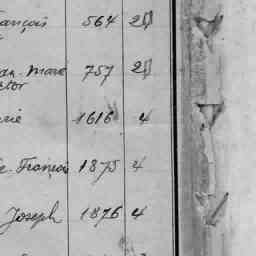 ançois 564 2
an-Marc 757 2
ctor
rie 1616 4
e. François 1875 4
Joseph 1876 4